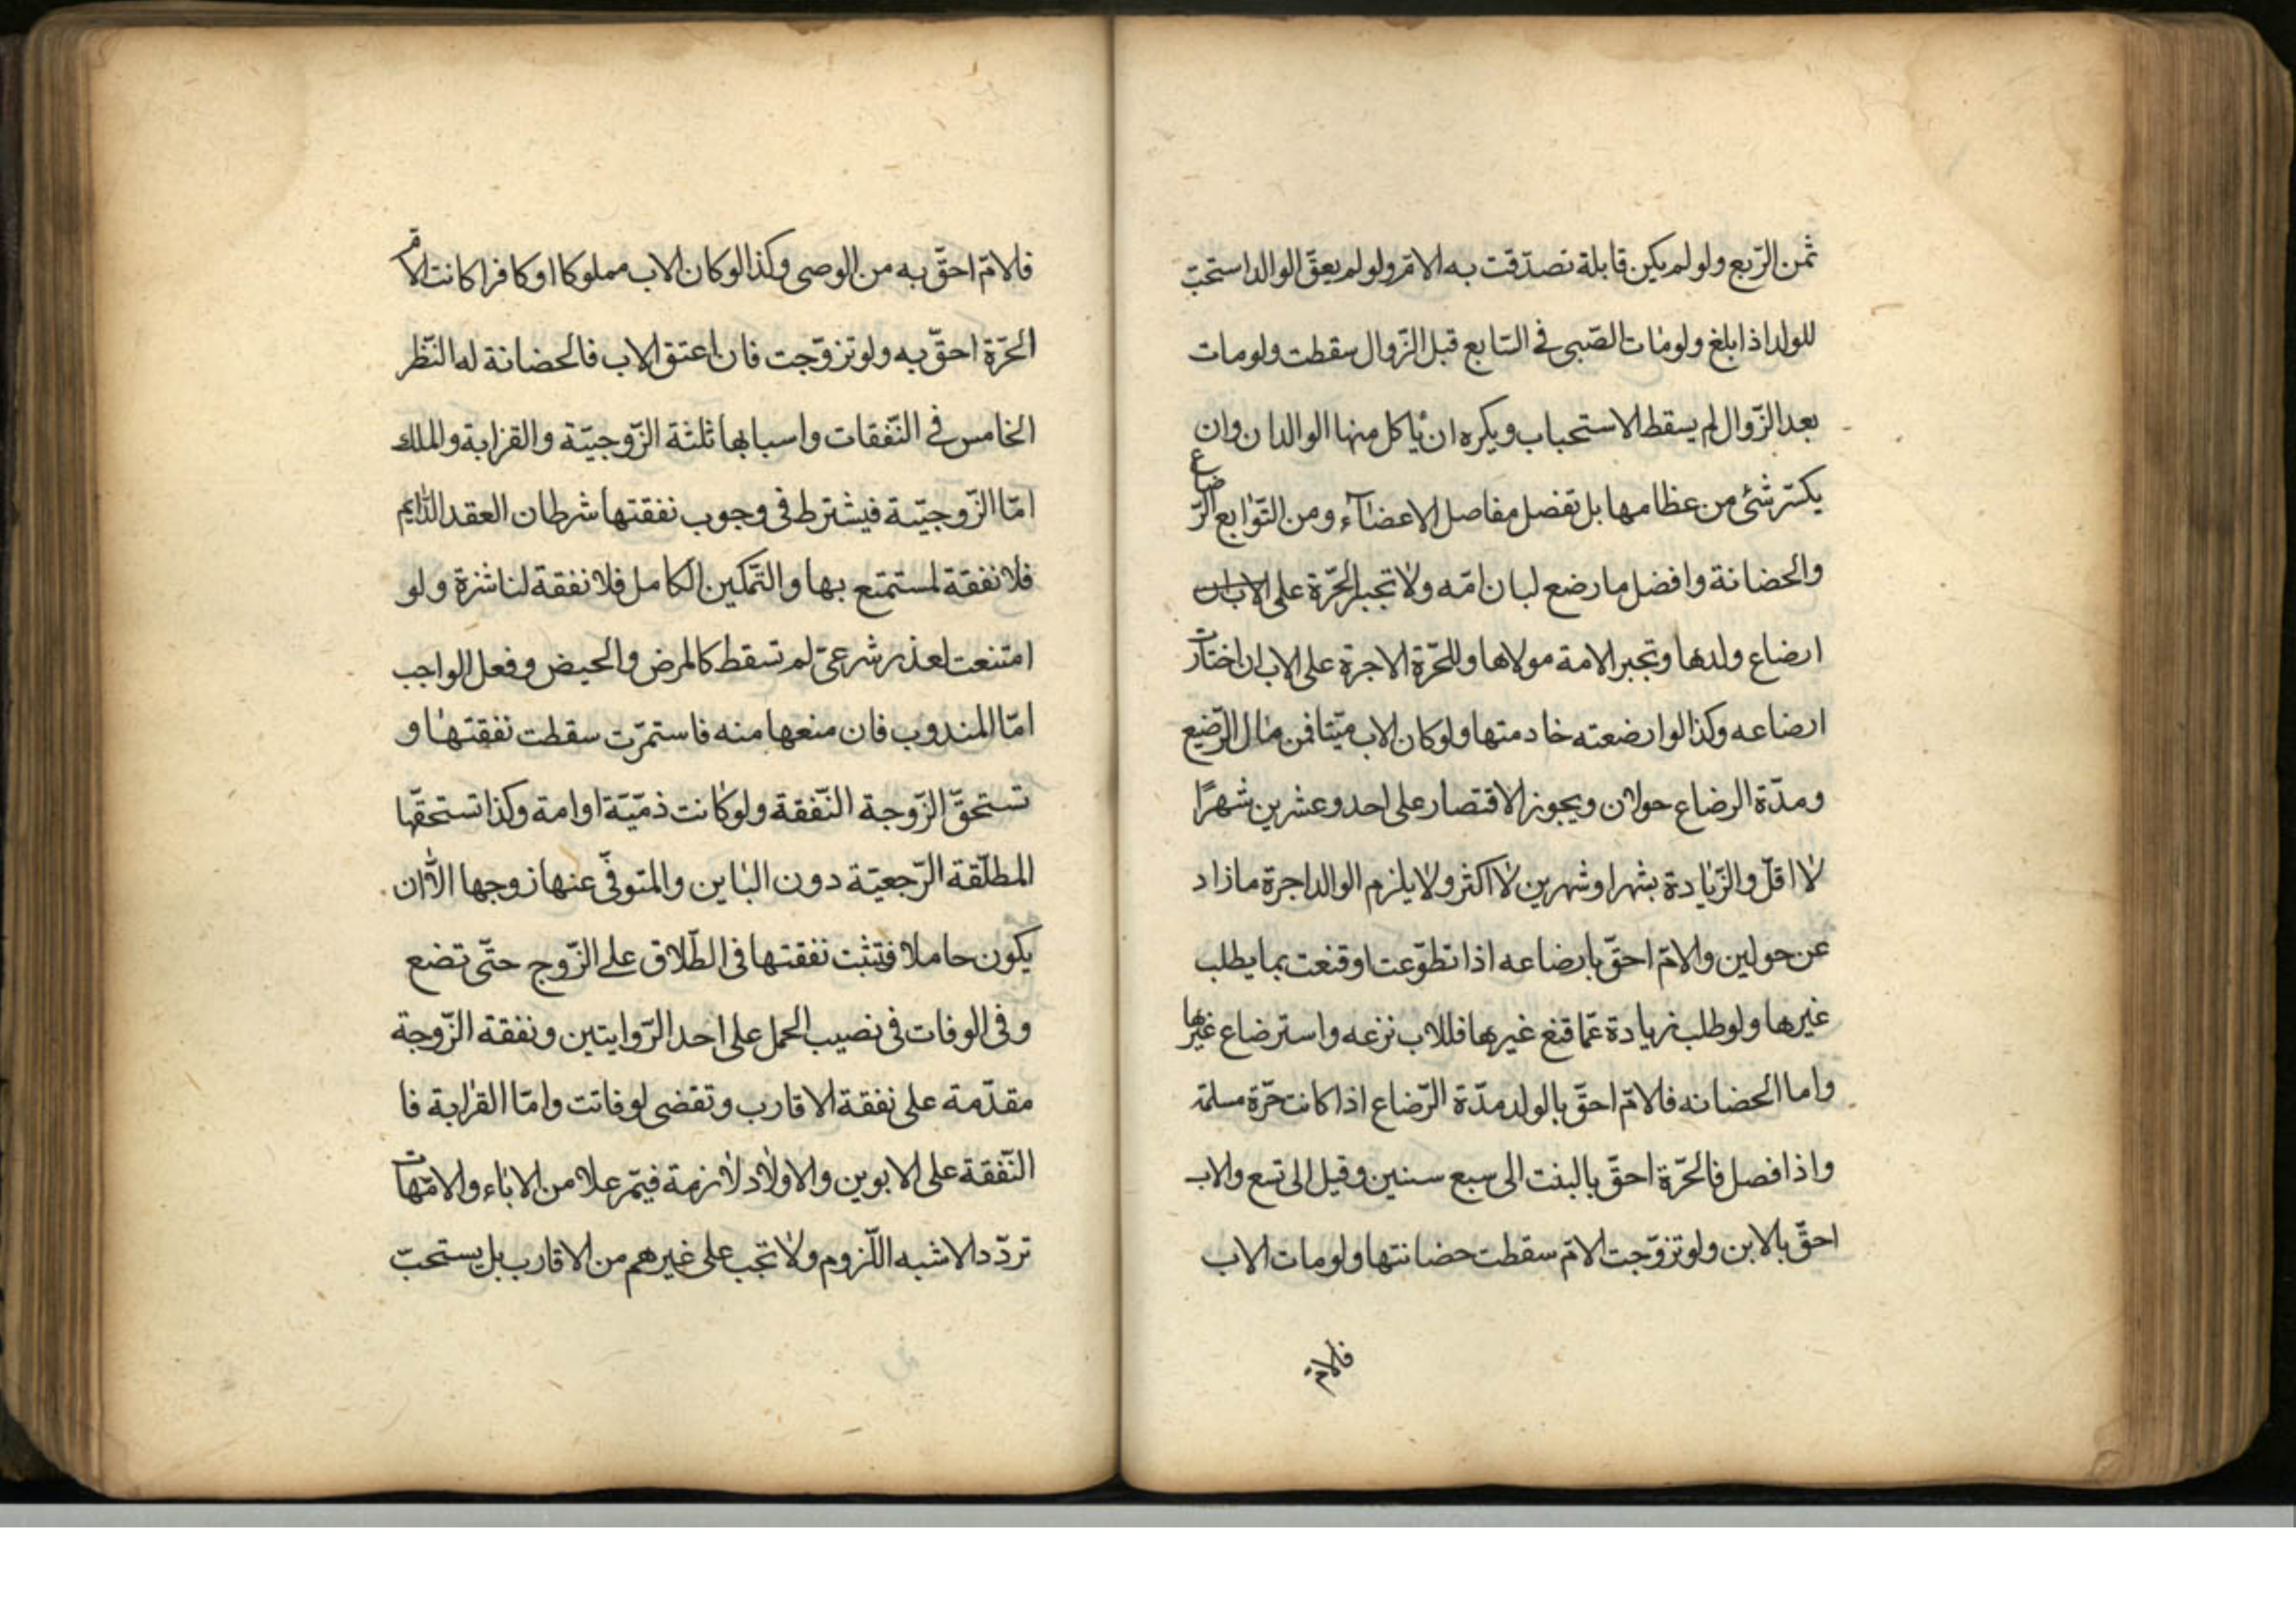 ثمن الرّبع ولو لم يكن قابلة تصدّقت به الامّ ولو لم يعقّ الوالد استحبّ
للولد اذا بلغ ولو مات الصّبى فى السّابع قبل الزّوال سقطت ولو مات
بعد الزّوال لم يسقط الاستحباب ويكره ان ياكل منها الوالدان وان
يكسّر شئ من عظامها بل تفصل مفاصل الاعضاء ومن التّوابع الرّضاع
والحضانة وافضل ما رضع لبان امّه ولا تجبر الحرّة على
ارضاع ولدها وتجبر الامة مولاها وللحرّة الاجرة على الاب ان اختارت
ارضاعه وكذا لو ارضعته خادمتها ولو كان الاب ميّتا فمن مال الرّضيع
ومدّة الرضاع حولان ويجوز الاقتصار على احد وعشرين شهرًا
لا اقلّ والزّيادة بشهر او شهرين لا اكثر ولا يلزم الوالد اجرة ما زاد
عن حولين والامّ احقّ بارضاعه اذا تطوّعت او قنعت بما يطلب
غيرها ولو طلب زيادة عمّا قنع غيرها فللاب نزعه واسترضاع غيرها
واما الحضانه فالامّ احقّ بالولد مدّة الرّضاع اذا كانت حرّة مسلمة
واذا فصل فالحرّة احقّ بالبنت الى سبع سنين وقيل الى تسع والاب
احقّ بالابن ولو تزوّجت الامّ سقطت حضانتها ولو مات الاب
فالامّ
فالامّ احقّ به من الوصى وكذا لو كان الاب مملوكا او كافرا كانت الامّ
الحرّة احقّ به ولو تزوّجت فان اعتق الاب فالحضانة له النّظر
الخامس فى النّفقات واسبابها ثلثة الزّوجيّة والقرابة والملك
امّا الزّوجيّة فيشترط فى وجوب نفقتها شرطان العقد الدّايم
فلا نفقة لمستمتع بها والتّمكين الكامل فلا نفقة لناشزة ولو
امتنعت لعذر شرعىّ لم تسقط كالمرض والحيض وفعل الواجب
امّا المندوب فان منعها منه فاستمرّت سقطت نفقتها و
تستحقّ الزّوجة النّفقة ولو كانت ذمّيّة او امة وكذا تستحقّها
المطلّقة الرّجعيّة دون الباين والمتوفّى عنها زوجها الّا ان
يكون حاملا فتثبت نفقتها فى الطّلاق على الزّوج حتّى تضع
وفى الوفات فى نصيب الحمل على احد الرّوايتين ونفقة الزّوجة
مقدّمة على نفقة الاقارب وتقضى لو فاتت وامّا القرابة فا
النّفقة على الابوين والاولاد لازمة فيمن علا من الاباء والامّهات
تردّد الاشبه اللّزوم ولا تجب على غيرهم من الاقارب بل يستحبّ